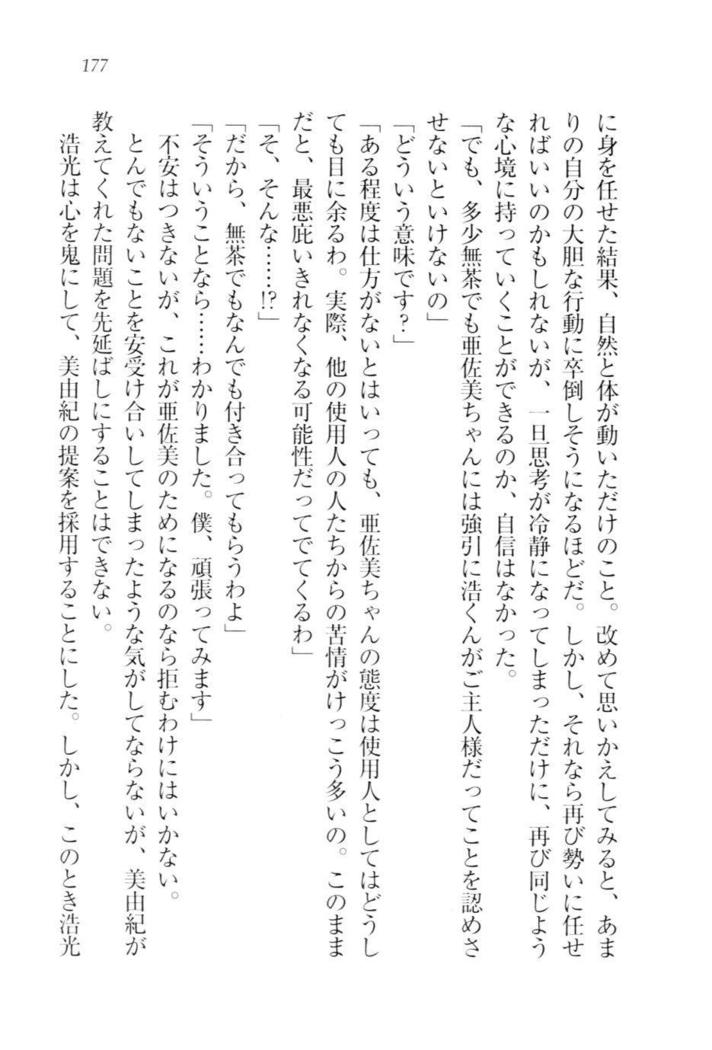 177
に身を任せた結果、自然と体が動いただけのこと。改めて思いかえしてみると、あま
りの自分の大胆な行動に卒倒しそうになるほどだ。しかし、それなら再び勢いに任せ
ればいいのかもしれないが、一旦思考が冷静になってしまっただけに、再び同じよう
な心境に持っていくことができるのか、自信はなかった。
「でも、多少無茶でも亜佐美ちゃんには強引に浩くんがご主人様だってことを認めさ
せないといけないの」
「どういう意味です？」
「ある程度は仕方がないとはいっても、亜佐美ちゃんの態度は使用人としてはどうし
ても目に余るわ。実際、他の使用人の人たちからの苦情がけっこう多いの。このまま
だと、最悪庇いきれなくなる可能性だってでてくるわ」
「そ、そんな……!?」
「だから、無茶でもなんでも付き合ってもらうわよ」
「そういうことなら……わかりました。僕、頑張ってみます」
不安はつきないが、これが亜佐美のためになるのなら拒むわけにはいかない。
とんでもないことを安受け合いしてしまったような気がしてならないが、美由紀が
教えてくれた問題を先延ばしにすることはできない。
浩光は心を鬼にして、美由紀の提案を採用することにした。しかし、このとき浩光